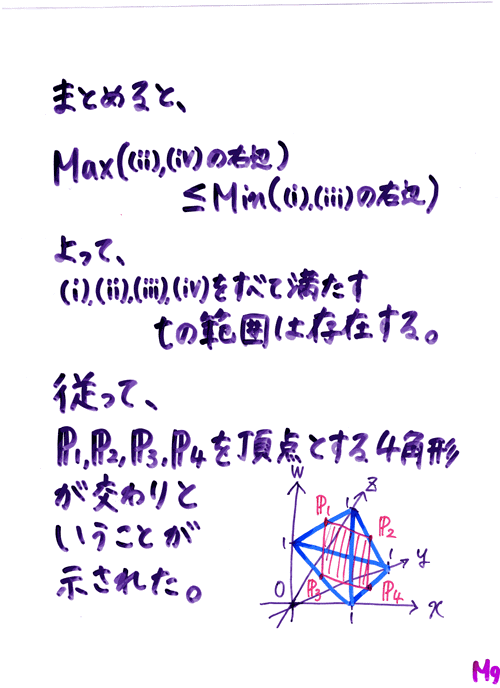 まとめると、
Max((ii),(iv)の右辺)
≦Min((i),(iii)の右辺)
よって、
(i),(ii),(iii),(iv)をすべて満たす
tの範囲は存在する。
従って、
ℙ1,ℙ2,ℙ3,ℙ4を頂点とする4角形
が交わりと
いうことが
示された。
w
z
ℙ1
1
ℙ2
1
1
y
0
ℙ3
ℙ4
x
1
M9